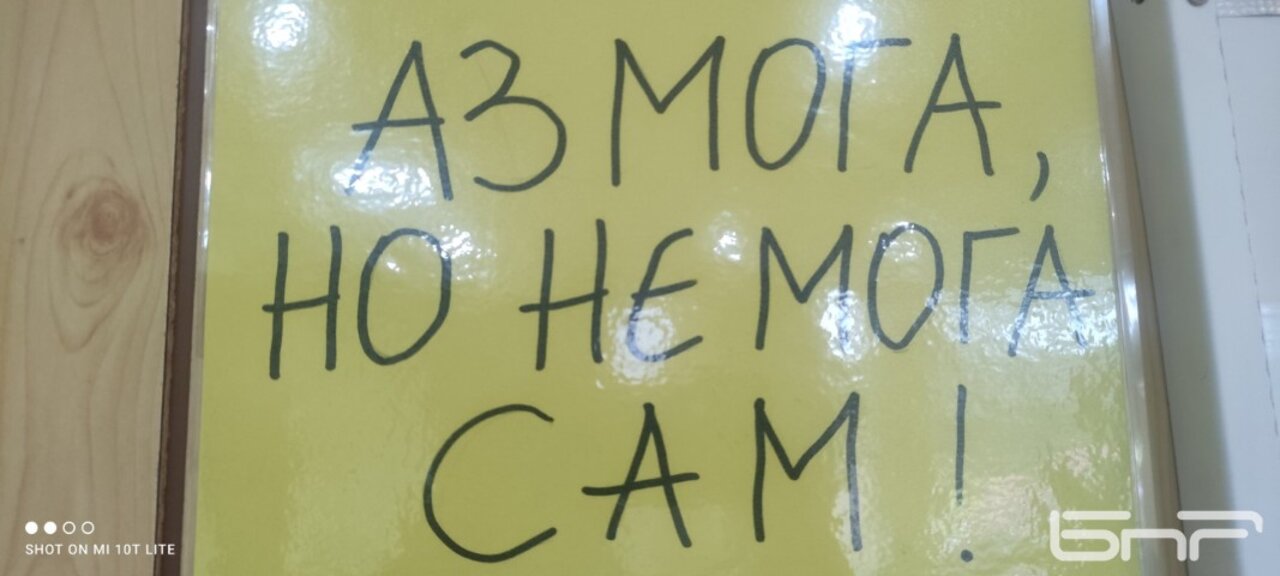 АЗ МОГА,
НО НЕ МОГА
САМ!
SHOT ON MI 10T LITE
БНР